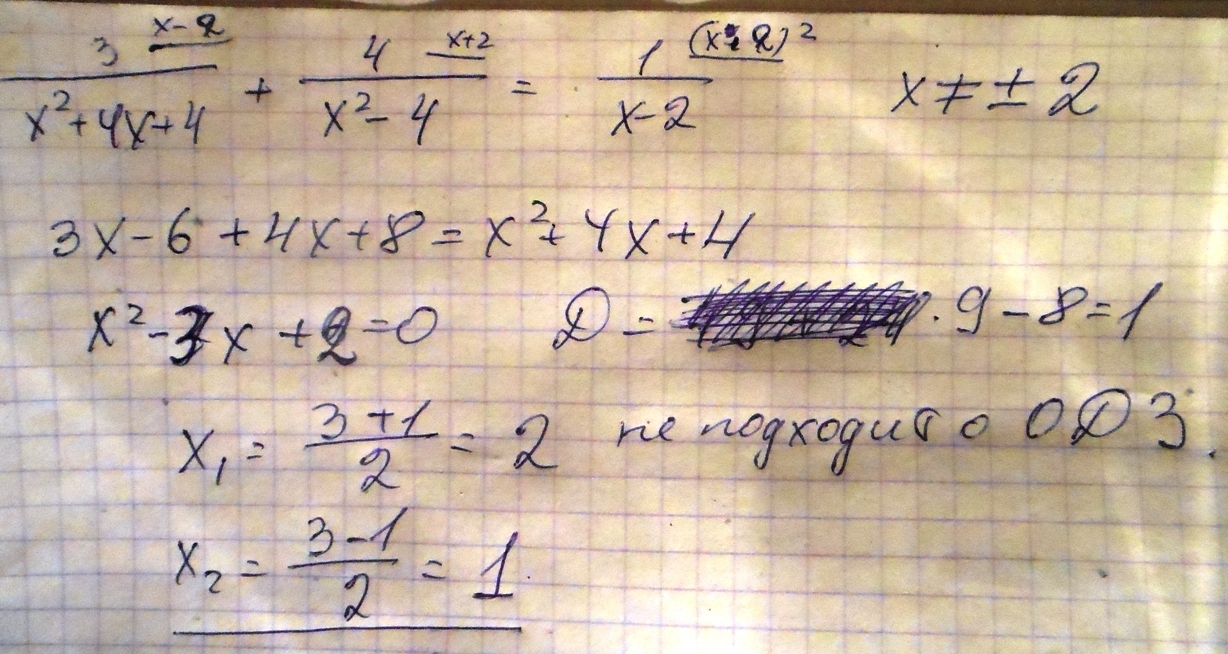 3/(x²+4x+4) x-2 + 4/(x²-4) x+2 = 1/(x-2) (x+2)² x ≠ ± 2
3x-6+4x+8=x²+4x+4
x²-3x+2=0 D = 9-8=1
x₁ = (3+1)/2 = 2 не подходит ОДЗ.
x₂ = (3-1)/2 = 1